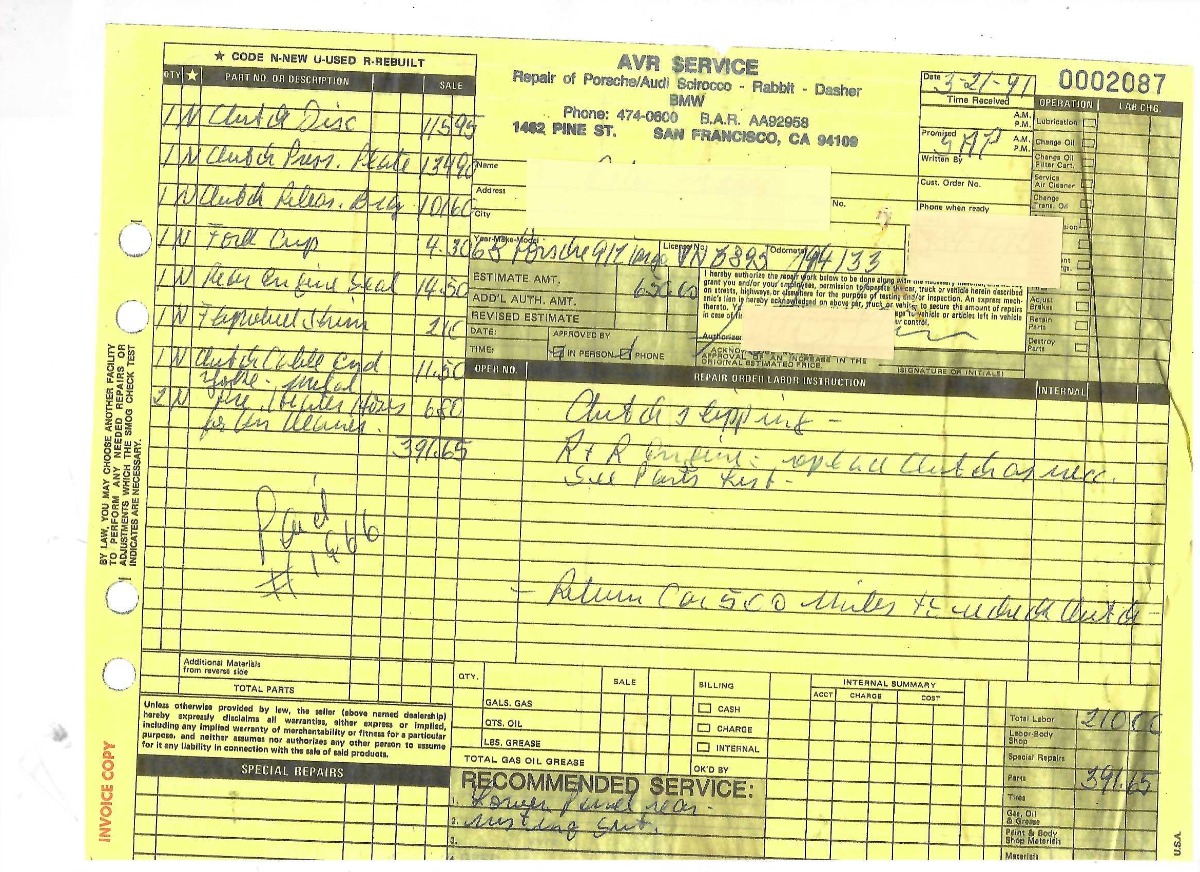 ★ CODE N-NEW U-USED R-REBUILT
QTY ★ PART NO. OR DESCRIPTION SALE
1 N Clutch Disc 115 95
1 N Clutch Press. Plate 134 90
1 N Clutch Releas. Brg 101 60
1 N Ford Cup 4.30
1 N Rear Engine Seal 14.50
1 N Flywheel Shim
1 N Clutch Cable End 11.50
Yoke - metal
2 N Hoses 6 80
for Air Cleaner.
391.65
Paid
#1466
BY LAW, YOU MAY CHOOSE ANOTHER FACILITY
TO PERFORM ANY NEEDED REPAIRS OR
ADJUSTMENTS WHICH THE SMOG CHECK TEST
INDICATES ARE NECESSARY.
AVR SERVICE
Repair of Porsche/Audi Scirocco - Rabbit - Dasher
BMW
Phone: 474-0600 B.A.R. AA92958
1462 PINE ST. SAN FRANCISCO, CA 94109
Name
Address
No.
City
Year-Make-Model 68 Porsche 912 Targa License No. Odometer 194133
ESTIMATE AMT. 650.00
ADD'L AUTH. AMT.
REVISED ESTIMATE
DATE: APPROVED BY
TIME: IN PERSON PHONE
I hereby authorize the repair work below to be done along with the necessary material,
grant you and/or your employees, permission to operate the car, truck or vehicle herein described
on streets, highways or elsewhere for the purpose of testing and/or inspection. An express mech-
anic's lien is hereby acknowledged on above car, truck or vehicle to secure the amount of repairs
thereto.
vehicle or articles left in vehicle
in case of fi
r control.
APPROVAL OF AN INCREASE IN THE
ORIGINAL ESTIMATED PRICE.
(SIGNATURE OR INITIALS)
Date 3-21-91
0002087
Time Received A.M.
P.M.
Promised A.M.
P.M.
Written By
Cust. Order No.
Phone when ready
OPERATION LAB. CHG.
Lubrication
Change Oil
Change Oil
Filter Cart.
Service
Air Cleaner
Change
Trans. Oil
Adjust
Brakes
Retain
Parts
Destroy
Parts
OPER NO. REPAIR ORDER LABOR INSTRUCTION INTERNAL
Clutch slipping -
R+R Engine - replace Clutch as necc.
See Parts List -
- Return Car 500 Miles to recheck Clutch -
Additional Materials
from reverse side
TOTAL PARTS
Unless otherwise provided by law, the seller (above named dealership)
hereby expressly disclaims all warranties, either express or implied,
including any implied warranty of merchantability or fitness for a particular
purpose, and neither assumes nor authorizes any other person to assume
for it any liability in connection with the sale of said products.
SPECIAL REPAIRS
INVOICE COPY
QTY. SALE
GALS. GAS
QTS. OIL
LBS. GREASE
TOTAL GAS OIL GREASE
BILLING
CASH
CHARGE
INTERNAL
OK'D BY
INTERNAL SUMMARY
ACCT CHARGE COST
RECOMMENDED SERVICE:
1. Lower Panel rear -
2. rusting
3.
4
Total Labor 210 00
Labor-Body
Shop
Special Repairs
Parts 391.65
Tires
Gas, Oil
& Grease
Paint & Body
Shop Materials
Materials
U.S.A.